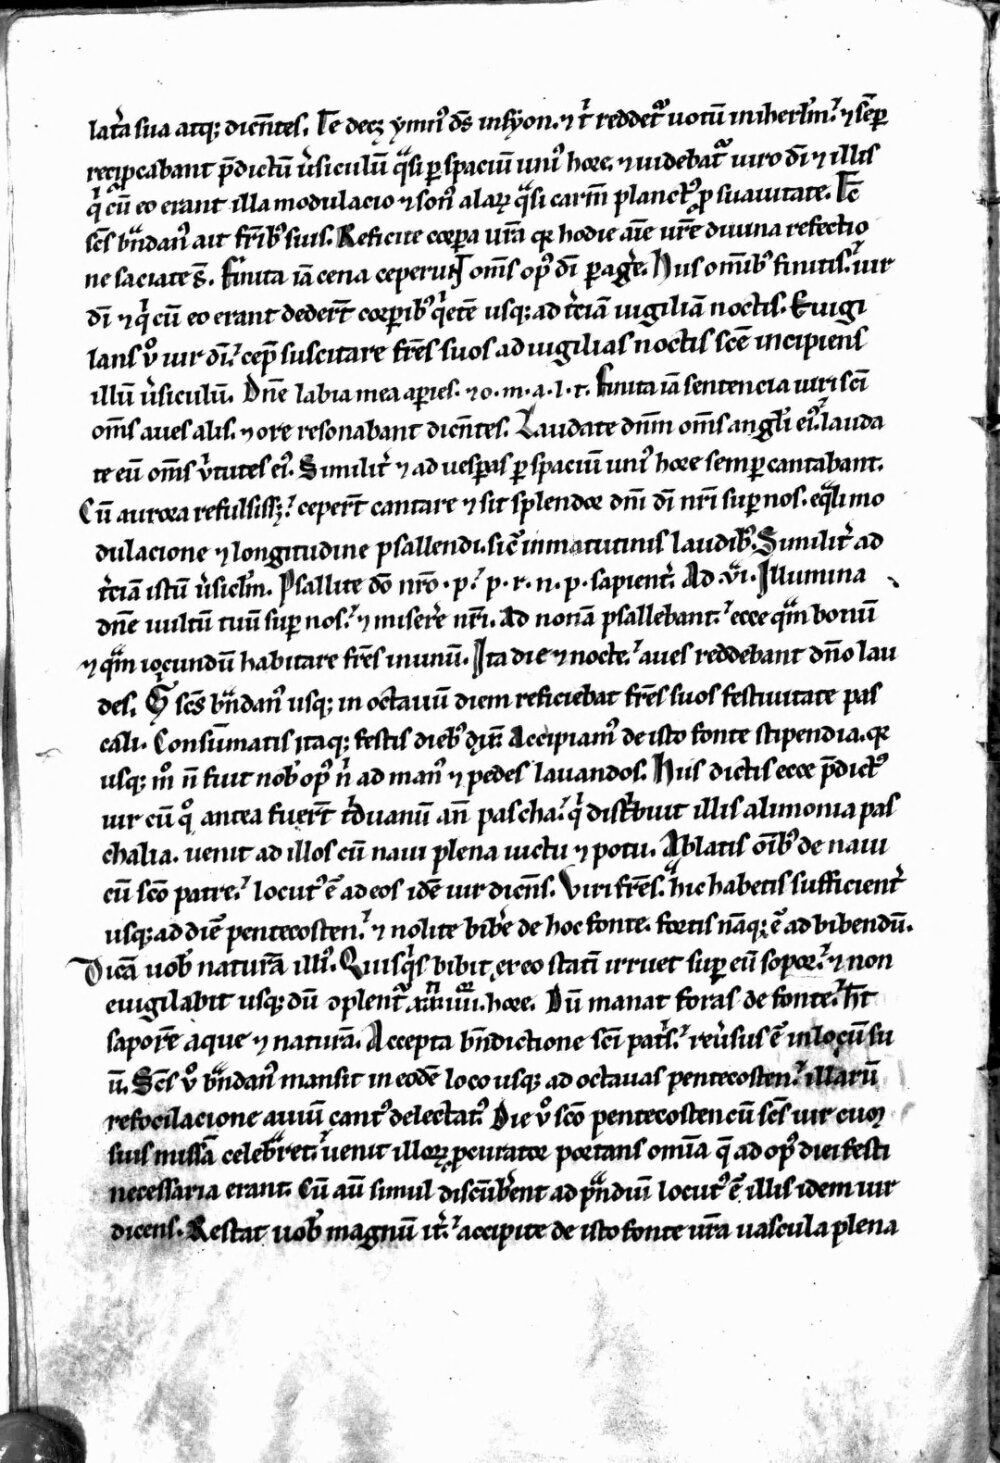 lat̾a sua atq; dicen̄tes. Te decꝫ ymnꝰ ds̄ insyon. ⁊ t̾ reddet᷑ uotū iniherl̄m.̾ ⁊ sēꝑ
recip̲cabant p̄dictū ỻsiculū q̾si ꝑ spaciū uniꝰ hore. ⁊ uidebat᷑ uiro dī ⁊ illis
q̾ cū eo erant illa modulacio ⁊ sonꝰ alaꝝ q̾si carm̄ planctꝰ ꝓ suauitate. Tc̄
sc̄s bn̾danꝰ ait fr̄ibꝰ suis. Reficite corpa ur̄a qr hodie aīe ur̄e diuina refectio
ne saciate s̄. Finita iā cena ceperūt om̄s opꝰ dī ꝑag̾e. Hiis om̄ibꝰ finitis.̾ uir
dī ⁊ q̾ cū eo erant dedert̄ corꝑibꝰ q̾etē usq; ad t̾ciā uigiliā noctis. Euigi
lans ꝟo uir dī.̾ cep̄ suscitare fr̄es suos ad uigilias noctis sc̄e incipiens
illū ỻsiculū. Dn̄e labia mea aꝑies. ⁊ o. m. a. l. t. Finita iā sentencia uiri sc̄i
om̄s aues alis. ⁊ ore resonabant dicn̄tes. Laudate dn̄m om̄s angl̾i eiꝰ.̾ lauda
te eū om̄s v̾tutes eiꝰ. Similit̾ ⁊ ad uesꝑas ꝑ spaciū uniꝰ hore semꝑ cantabant.
Cū aurora refulsissꝫ.̾ ceperт̄ cantare ⁊ sit splendor dn̄i dī nr̄i suꝑ nos. eq̾li mo
dulacione ⁊ longitudine psallendi. sic̄ inmatutinis laudibꝰ. Similit̾ ad
t̾ciā istū ỻsicl̄m. Psallite dō nr̄o. p.̾ p. r. n. p. sapient̾. Ad .vi. Illumina
dn̄e uultū tuū suꝑ nos.̾ ⁊ miser̾e nr̄i. Ad nonā psallebant.̾ ecce q̾m bonū
⁊ q̾m iocundū habitare fr̄es inunū. Ita die ⁊ nocte.̾ aues reddebant dn̄o lau
des. sc̄s bn̾danꝰ usq; in octauū diem reficiebat fr̄es suos festiuitate pas
cali. Consūmatis itaq; festis diebꝰ Accipiamꝰ de isto fonte stipendia. qr
usq; m̊ n̄ fuit nob̾ opꝰ n̾ ad manꝰ ⁊ pedes lauandos. Hiis dictis ecce p̄dictꝰ
uir cū q̊ antea fuer̄t t̾duanū an̄ pascha.̾ q̾ dist̾buit illis alimonia pas
chalia. uenit ad illos cū naui plena uictu ⁊ potu. Ablatis oīb̾ de naui
cū sc̄o patre.̾ locutꝰ ē ad eos idē uir dicn̄s. Viri fr̄es.̾ hic habetis sufficient̾
usq; ad diē pentecosten.̾ ⁊ nolite bib̾e de hoc fonte. fortis nāq; ē ad bibendū.
Dicā uob̾ naturā illiꝰ. Quisq̾s bibit ex eo statī irruet suꝑ eū sopor.̾ ⁊ non
euigilabit usq; dū ꝯplent᷑ hore. Dū manat foras de fonte.̾ h̄t
saporē aque ⁊ naturā. Accepta bn̄dictione sc̄i pat̾s.̾ reu̾sus ē inlocū su
ū. Sc̄s ꝟo bn̾danꝰ mansit in eodē loco usq; ad octauas pentecosten.̾ illarū
refocilacione auiū cantꝰ delectatꝰ. Die ꝟo sc̄o pentecosten cū sc̄s uir cuꝫ
suis missā celebr̾et.̾ uenit illoꝝ ꝓcurator portans om̄ia q̄ ad opꝰ diei festi
necessaria erant. Cū aūt simul discūb̾ent ad pn̄diū locutꝰ ē illis idem uir
dicens. Restat uob̾ magnū it̾.̾ accipite de isto fonte ur̄a uascula plena